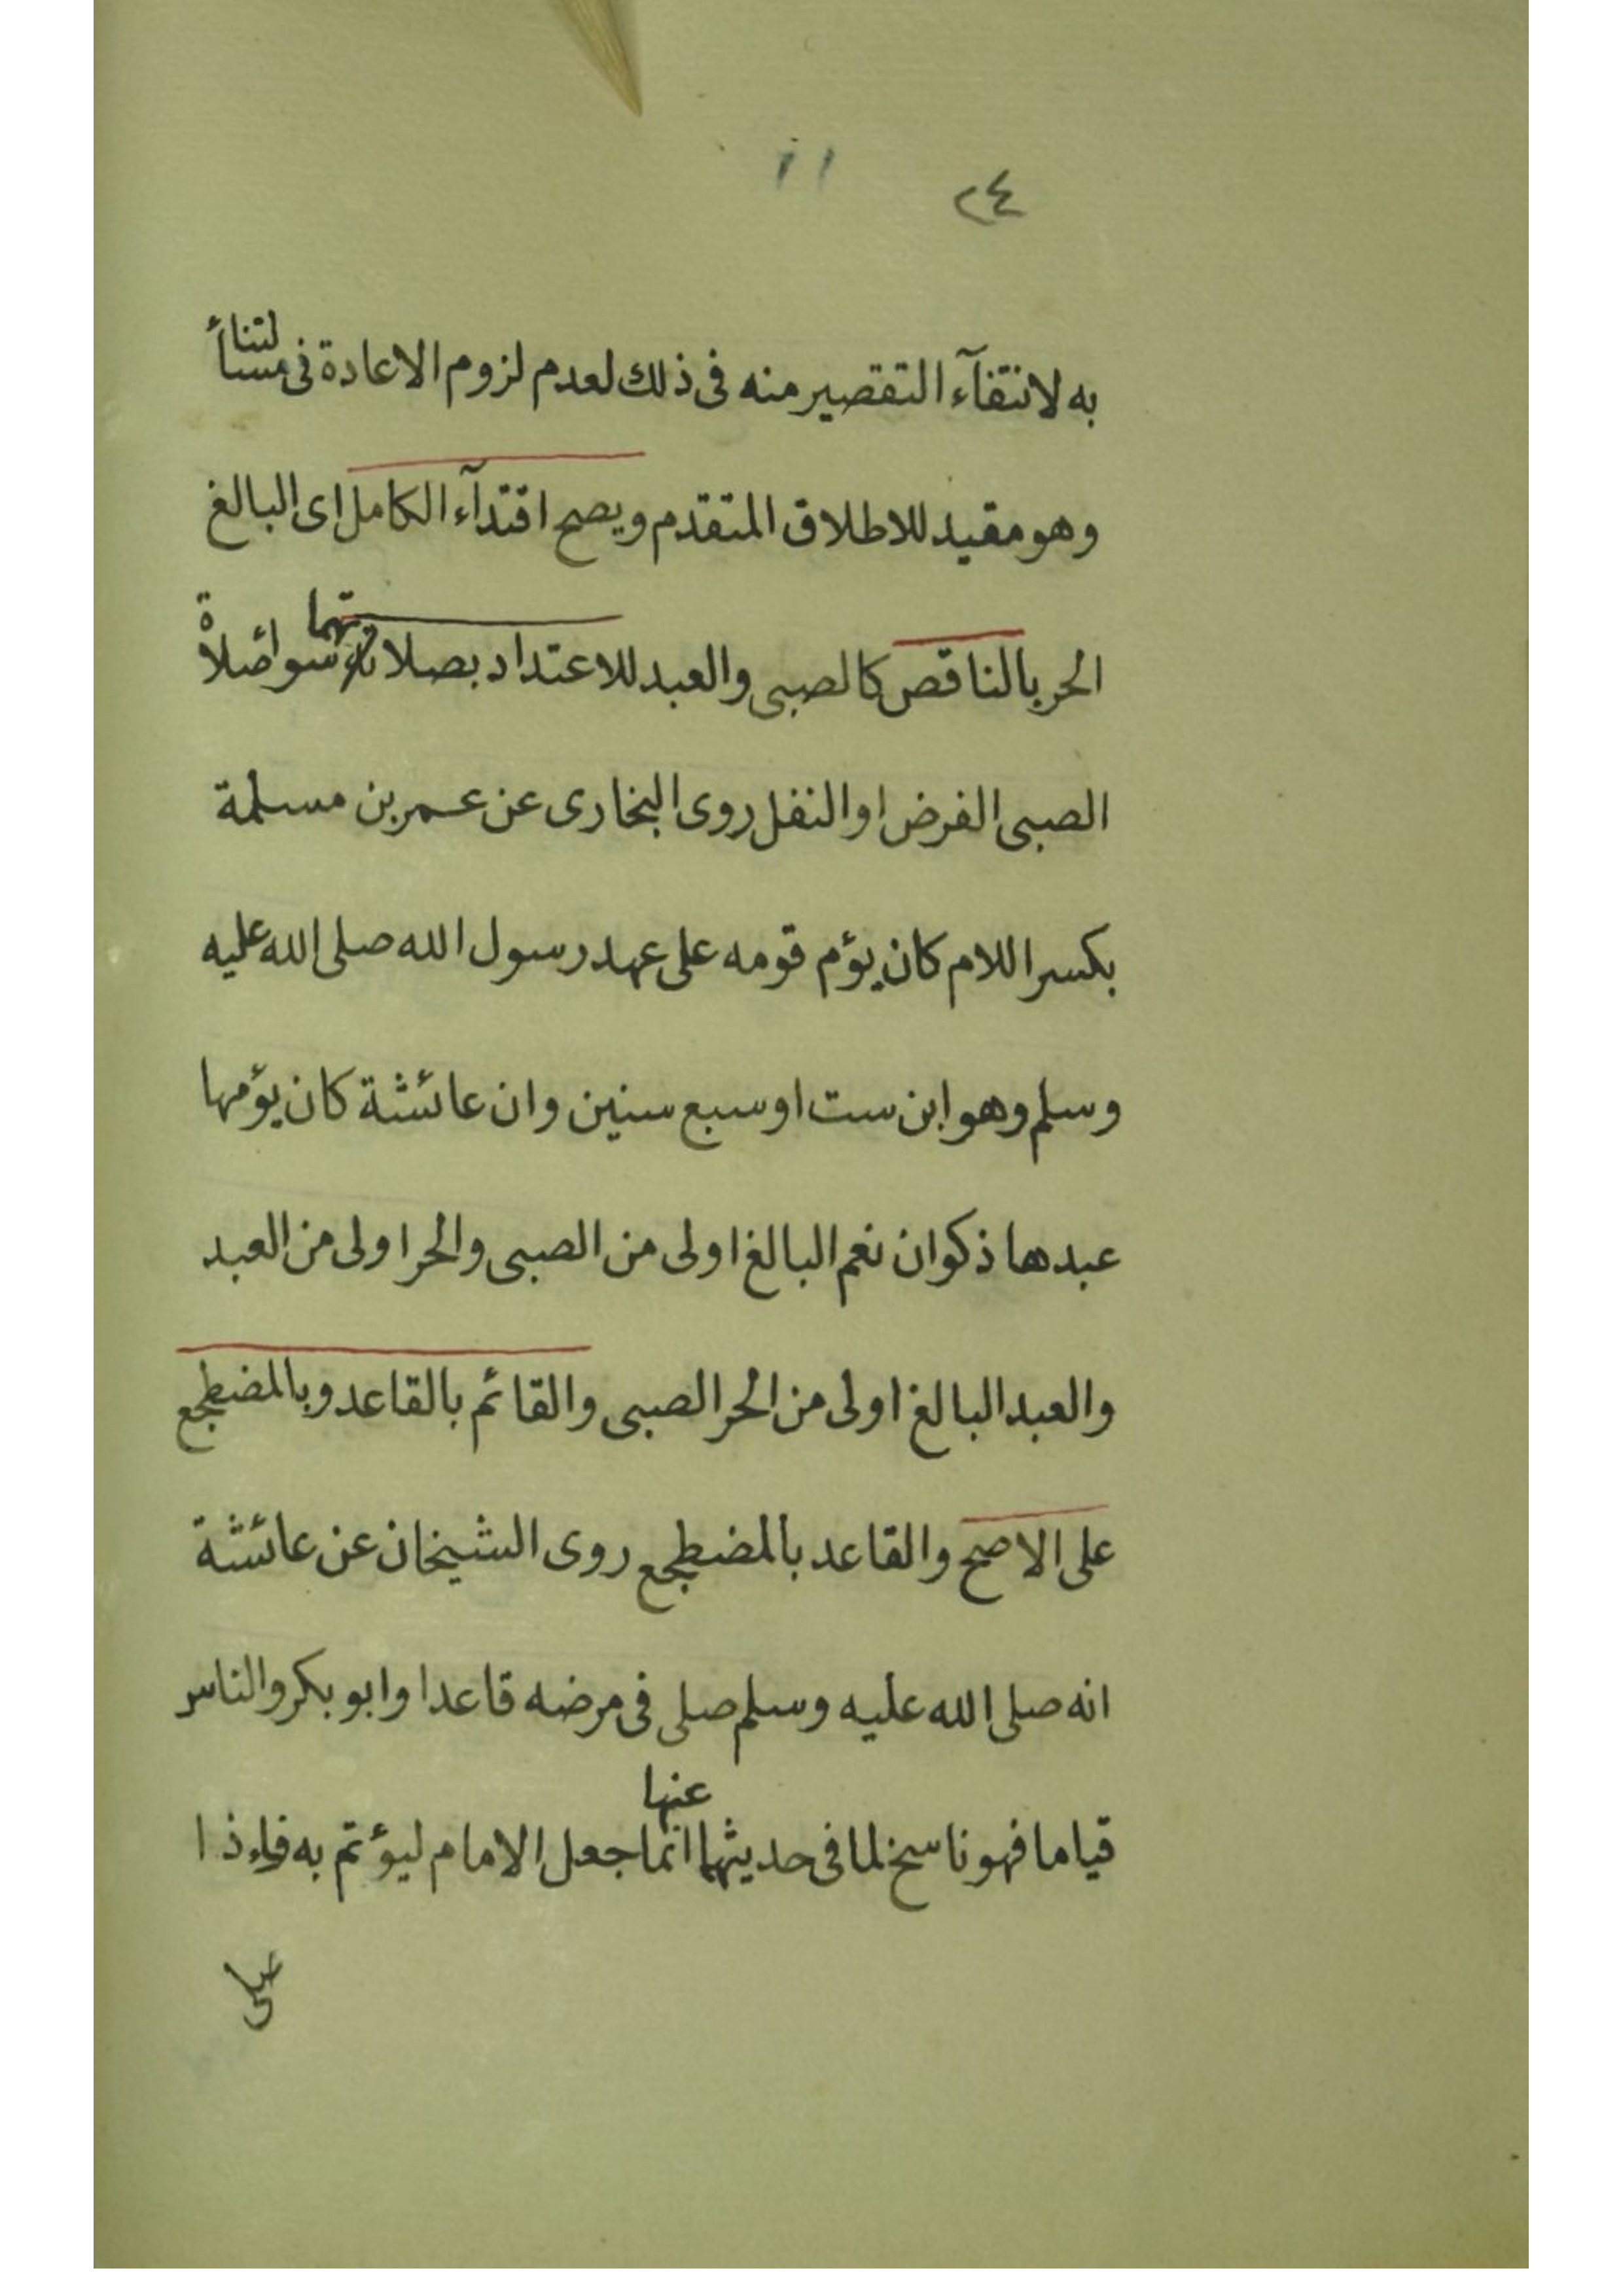 ٢٤ ١١
به لانتقآء التقصير منه فى ذلك لعدم لزوم الاعادة فى مسألتنا
وهو مقيد للاطلاق المتقدم ويصح اقتدآء الكامل اى البالغ
الحر بالناقص كالصبى والعبد للاعتداد بصلاتهما سوأ صلاة
الصبى الفرض او النفل روى البخارى عن عمر بن مسلمة
بكسر اللام كان يؤم قومه على عهد رسول الله صلى الله عليه
وسلم وهو ابن ست او سبع سنين وان عائشة كان يؤمها
عبدها ذكوان نعم البالغ اولى من الصبى والحر اولى من العبد
والعبد البالغ اولى من الحر الصبى والقائم بالقاعد وبالمضطجع
على الاصح والقاعد بالمضطجع روى الشيخان عن عائشة
انه صلى الله عليه وسلم صلى فى مرضه قاعدا وابو بكر والناس
قياما فهو ناسخ لما فى حديثهما عنها انما جعل الامام ليؤتم به فاءذا
صلى